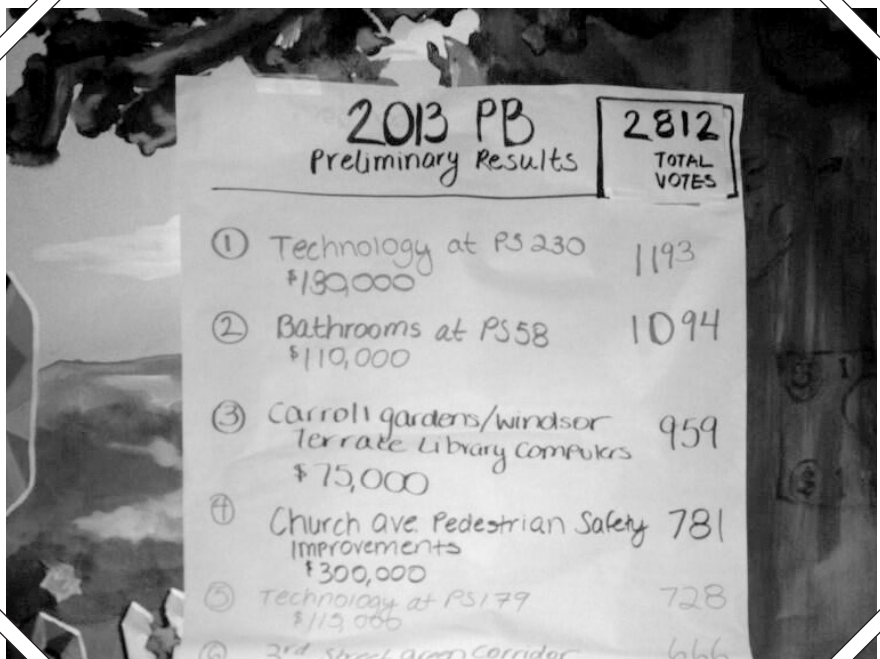 2013 PB
Preliminary Results
2812
TOTAL
VOTES
① Technology at PS 230 1193
② Bathrooms at PS 58 1094
$110,000
③ Carroll gardens/windsor 959
Terrace Library Computers
$75,000
④ Church ave Pedestrian Safety 781
Improvements
$300,000
⑤ Technology at PS 179 728
⑥ 3rd Street green corridor 666